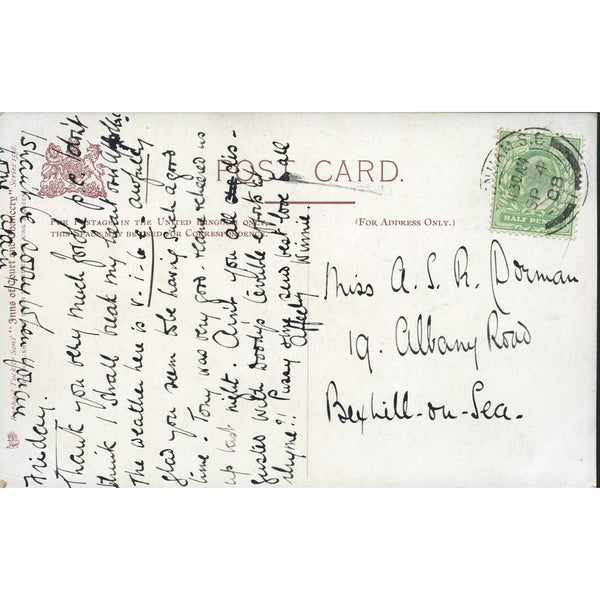 POST CARD.
FOR POSTAGE IN THE UNITED KINGDOM ONLY
THIS SPACE MAY BE USED FOR CORRESPONDENCE.
(FOR ADDRESS ONLY.)
HALF PENNY
S.E.
SP 4
08
Miss A. S. R. Dorman
19. Albany Road
Bexhill-on-Sea.
Friday.
Thank you very much for the p.c. I don't
think I shall break my heart
The weather here is v-i-l-e awfully
glad you seem to be having such a good
time - Tony was very good - & cheered us
up last night. Ain't you all dis-
gusted with Doody's terrible efforts at
rhyme?! Pussy & Jim send best love & all
Affecly Winnie.
"Inns of Court and Chancery"